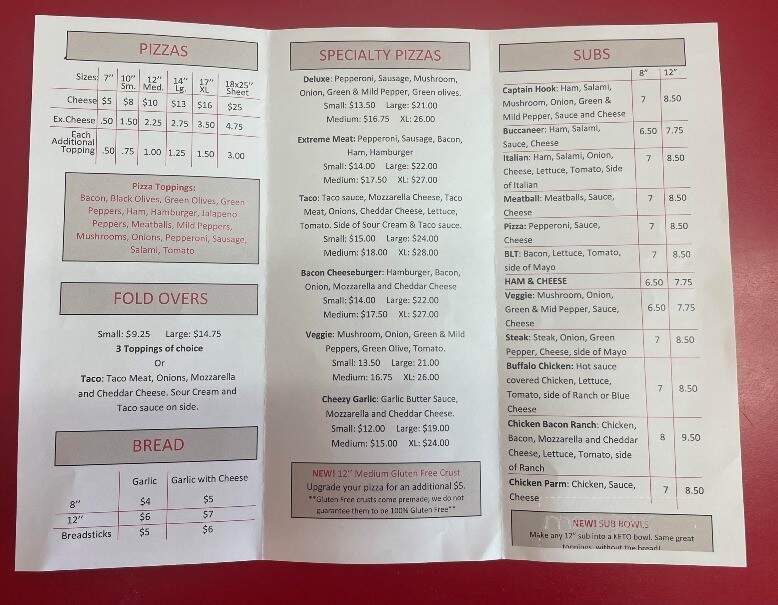 PIZZAS
Sizes: 7" 10" Sm. 12" Med. 14" Lg. 17" XL 18x25" Sheet
Cheese $5 $8 $10 $13 $16 $25
Ex.Cheese .50 1.50 2.25 2.75 3.50 4.75
Each
Additional
Topping .50 .75 1.00 1.25 1.50 3.00
Pizza Toppings:
Bacon, Black Olives, Green Olives, Green
Peppers, Ham, Hamburger, Jalapeno
Peppers, Meatballs, Mild Peppers,
Mushrooms, Onions, Pepperoni, Sausage,
Salami, Tomato
FOLD OVERS
Small: $9.25 Large: $14.75
3 Toppings of choice
Or
Taco: Taco Meat, Onions, Mozzarella
and Cheddar Cheese. Sour Cream and
Taco sauce on side.
BREAD
Garlic Garlic with Cheese
8" $4 $5
12" $6 $7
Breadsticks $5 $6
SPECIALTY PIZZAS
Deluxe: Pepperoni, Sausage, Mushroom,
Onion, Green & Mild Pepper, Green olives.
Small: $13.50 Large: $21.00
Medium: $16.75 XL: 26.00
Extreme Meat: Pepperoni, Sausage, Bacon,
Ham, Hamburger
Small: $14.00 Large: $22.00
Medium: $17.50 XL: $27.00
Taco: Taco sauce, Mozzarella Cheese, Taco
Meat, Onions, Cheddar Cheese, Lettuce,
Tomato. Side of Sour Cream & Taco sauce.
Small: $15.00 Large: $24.00
Medium: $18.00 XL: $28.00
Bacon Cheeseburger: Hamburger, Bacon,
Onion, Mozzarella and Cheddar Cheese
Small: $14.00 Large: $22.00
Medium: $17.50 XL: $27.00
Veggie: Mushroom, Onion, Green & Mild
Peppers, Green Olive, Tomato.
Small: 13.50 Large: 21.00
Medium: 16.75 XL: 26.00
Cheezy Garlic: Garlic Butter Sauce,
Mozzarella and Cheddar Cheese.
Small: $12.00 Large: $19.00
Medium: $15.00 XL: $24.00
NEW! 12" Medium Gluten Free Crust
Upgrade your pizza for an additional $5.
**Gluten Free crusts come premade; we do not
guarantee them to be 100% Gluten Free**
SUBS
8" 12"
Captain Hook: Ham, Salami,
Mushroom, Onion, Green &
Mild Pepper, Sauce and Cheese 7 8.50
Buccaneer: Ham, Salami,
Sauce, Cheese 6.50 7.75
Italian: Ham, Salami, Onion,
Cheese, Lettuce, Tomato, Side
of Italian 7 8.50
Meatball: Meatballs, Sauce,
Cheese 7 8.50
Pizza: Pepperoni, Sauce,
Cheese 7 8.50
BLT: Bacon, Lettuce, Tomato,
side of Mayo 7 8.50
HAM & CHEESE 6.50 7.75
Veggie: Mushroom, Onion,
Green & Mild Pepper, Sauce,
Cheese 6.50 7.75
Steak: Steak, Onion, Green
Pepper, Cheese, side of Mayo 7 8.50
Buffalo Chicken: Hot sauce
covered Chicken, Lettuce,
Tomato, side of Ranch or Blue
Cheese 7 8.50
Chicken Bacon Ranch: Chicken,
Bacon, Mozzarella and Cheddar
Cheese, Lettuce, Tomato, side
of Ranch 8 9.50
Chicken Parm: Chicken, Sauce,
Cheese 7 8.50
NEW! SUB BOWLS
Make any 12" sub into a KETO bowl. Same great
toppings, without the bread!